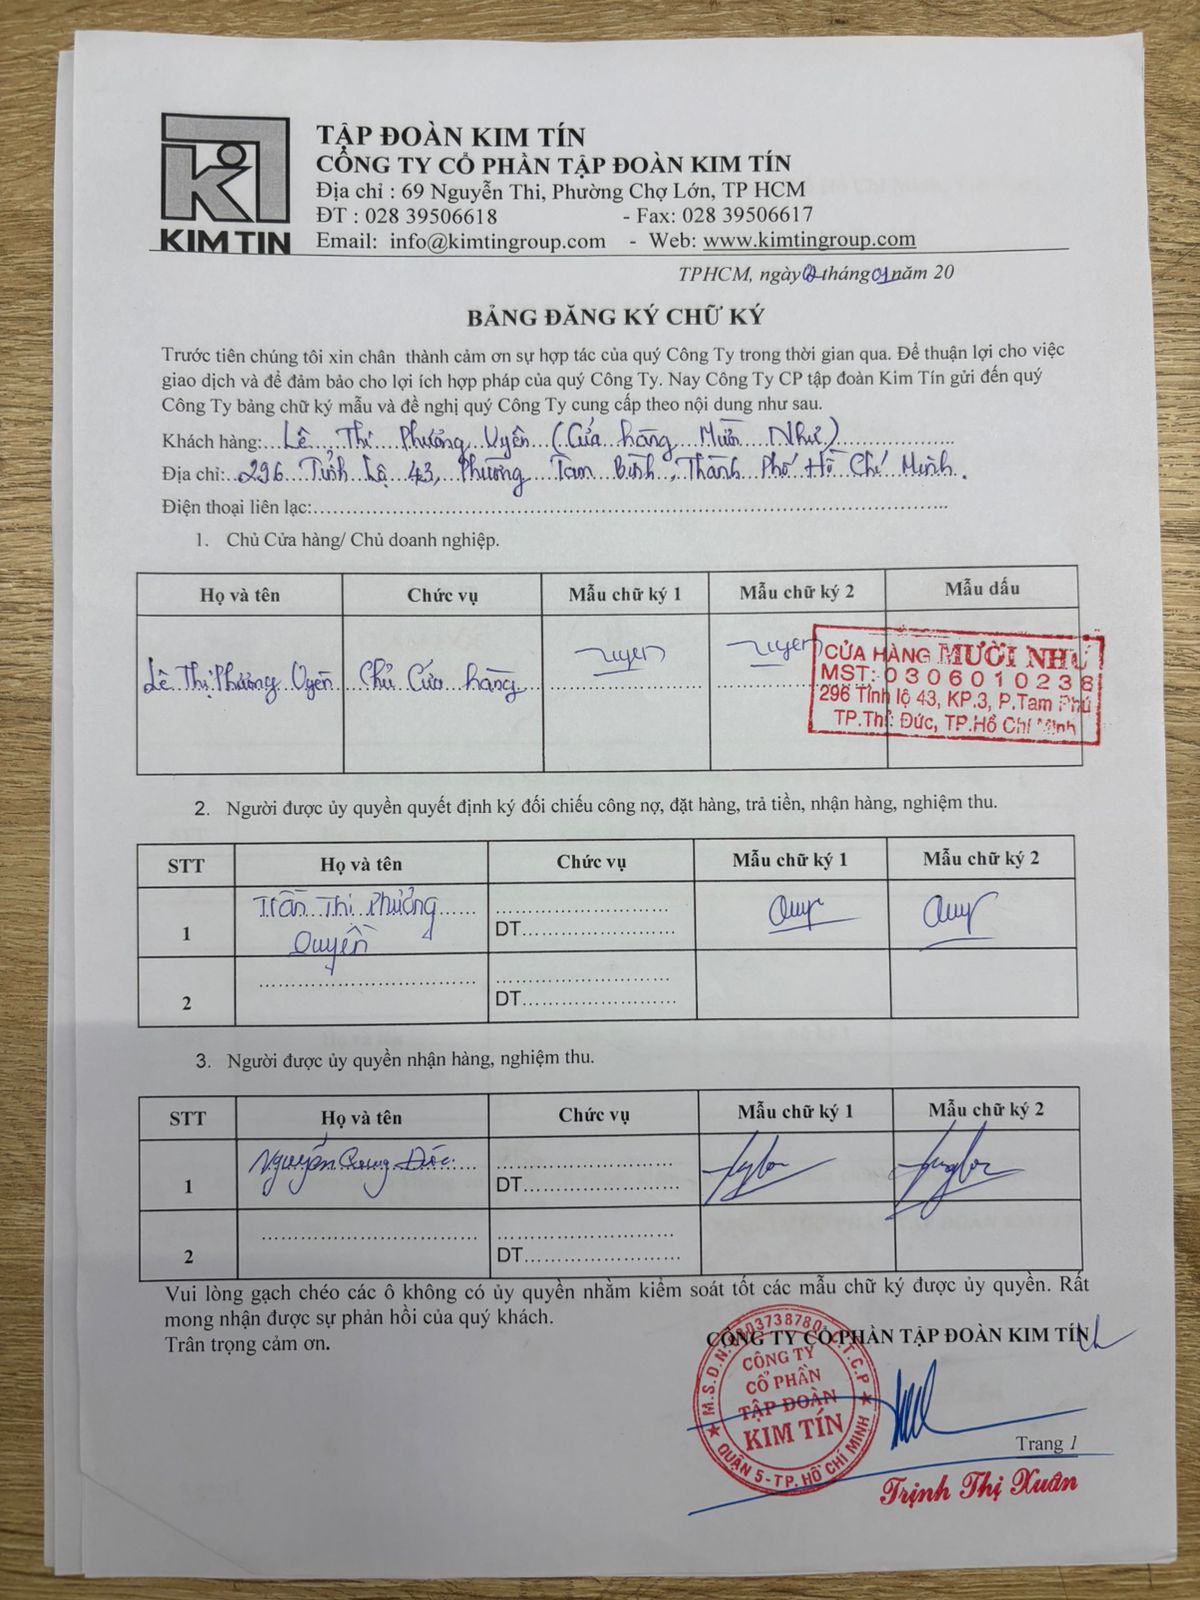 KIM TIN
TẬP ĐOÀN KIM TÍN
CÔNG TY CỔ PHẦN TẬP ĐOÀN KIM TÍN
Địa chỉ : 69 Nguyễn Thi, Phường Chợ Lớn, TP HCM
ĐT : 028 39506618 - Fax: 028 39506617
Email: info@kimtingroup.com - Web: www.kimtingroup.com
TPHCM, ngày 02 tháng 01 năm 20
BẢNG ĐĂNG KÝ CHỮ KÝ
Trước tiên chúng tôi xin chân thành cảm ơn sự hợp tác của quý Công Ty trong thời gian qua. Để thuận lợi cho việc
giao dịch và để đảm bảo cho lợi ích hợp pháp của quý Công Ty. Nay Công Ty CP tập đoàn Kim Tín gửi đến quý
Công Ty bảng chữ ký mẫu và đề nghị quý Công Ty cung cấp theo nội dung như sau.
Khách hàng: Lê Thị Phương Uyên (Cửa hàng Mười Như)
Địa chỉ: 296 Tỉnh Lộ 43, Phường Tam Bình, Thành Phố Hồ Chí Minh.
Điện thoại liên lạc:
1. Chủ Cửa hàng/ Chủ doanh nghiệp.
Họ và tên Chức vụ Mẫu chữ ký 1 Mẫu chữ ký 2 Mẫu dấu
Lê Thị Phương Uyên Chủ Cửa hàng uyen uyen
CỬA HÀNG MƯỜI NHƯ
MST: 0306010238
296 Tỉnh lộ 43, KP.3, P.Tam Phú
TP.Thủ Đức, TP.Hồ Chí Minh
2. Người được ủy quyền quyết định ký đối chiếu công nợ, đặt hàng, trả tiền, nhận hàng, nghiệm thu.
STT Họ và tên Chức vụ Mẫu chữ ký 1 Mẫu chữ ký 2
1 Trần Thị Phương Quyền DT
2 DT
3. Người được ủy quyền nhận hàng, nghiệm thu.
STT Họ và tên Chức vụ Mẫu chữ ký 1 Mẫu chữ ký 2
1 Nguyễn Quang DT
2 DT
Vui lòng gạch chéo các ô không có ủy quyền nhằm kiểm soát tốt các mẫu chữ ký được ủy quyền. Rất
mong nhận được sự phản hồi của quý khách.
Trân trọng cảm ơn.
CÔNG TY CỔ PHẦN TẬP ĐOÀN KIM TÍN
CÔNG TY
CỔ PHẦN
TẬP ĐOÀN
KIM TÍN
QUẬN 5 - TP. HỒ CHÍ MINH
Trang 1
Trịnh Thị Xuân